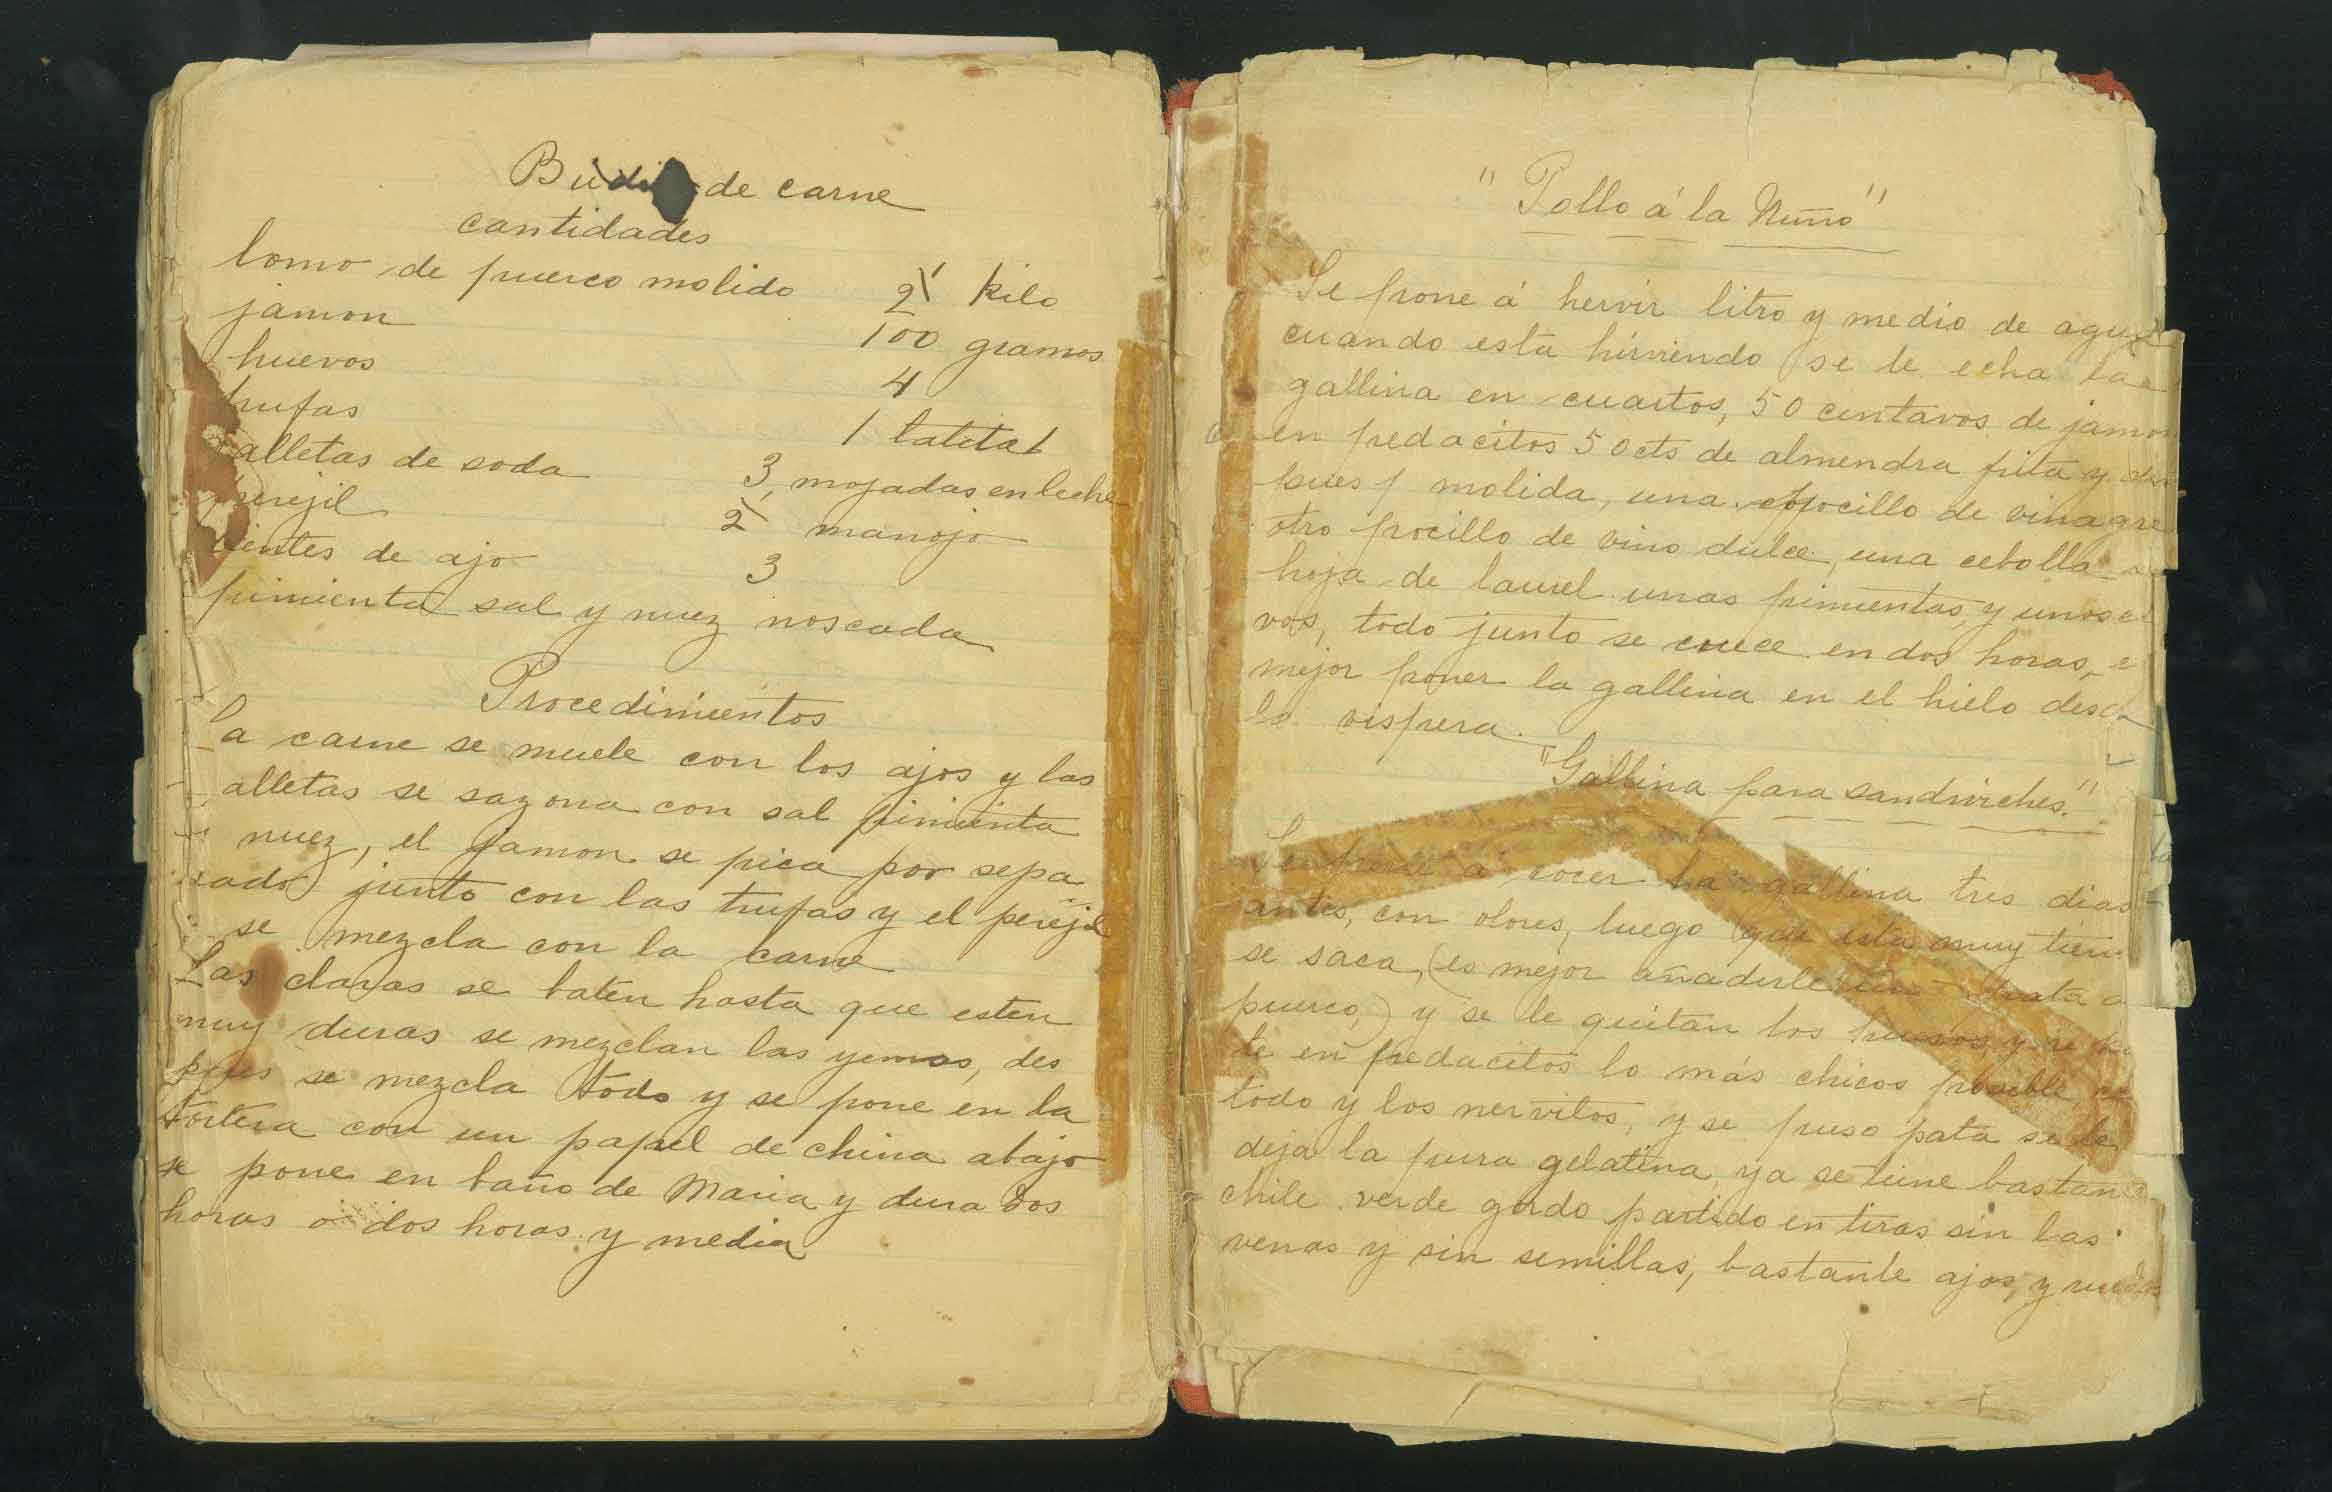 Budi de carne
cantidades
lomo de puerco molido 1/2 kilo
jamon 100 gramos
huevos 4
trufas 1 latita
alletas de soda 3, mojadas en leche
perejil 1/2 manojo
dientes de ajo 3
pimienta sal y nuez noscada
Procedimientos
la carne se muele con los ajos y las
alletas se sazona con sal pimienta
nuez, el jamon se pica por sepa
rado junto con las trufas y el perejil
se mezcla con la carne
Las claras se baten hasta que esten
muy duras se mezclan las yemas, des
pues se mezcla todo y se pone en la
tortera con un papel de china abajo
se pone en baño de Maria y dura dos
horas o dos horas y media
"Pollo á la Nuño"
Se pone á hervir litro y medio de agua
cuando esta hirviendo se le echa la
gallina en cuartos, 50 centavos de jamon
en pedacitos 50 cts de almendra frita y des
pues molida, una pocillo de vinagre
otro pocillo de vino dulce, una cebolla
hoja de laurel unas pimientas, y unos cl
vos, todo junto se cuece en dos horas, e
mejor poner la gallina en el hielo desde
la vispera.
"Gallina para sandwiches."
Se pone á cocer la gallina tres dias
antes, con olores, luego que esta muy tiern
se saca, (es mejor añadirle una pata d
puerco,) y se le quitan los huesos y se
te en pedacitos lo más chicos posible,
todo y los nervitos, y se puso pata se le
deja la pura gelatina, ya se tiene bastan
chile verde gordo partido en tiras sin las
venas y sin semillas, bastante ajos, y ruedas